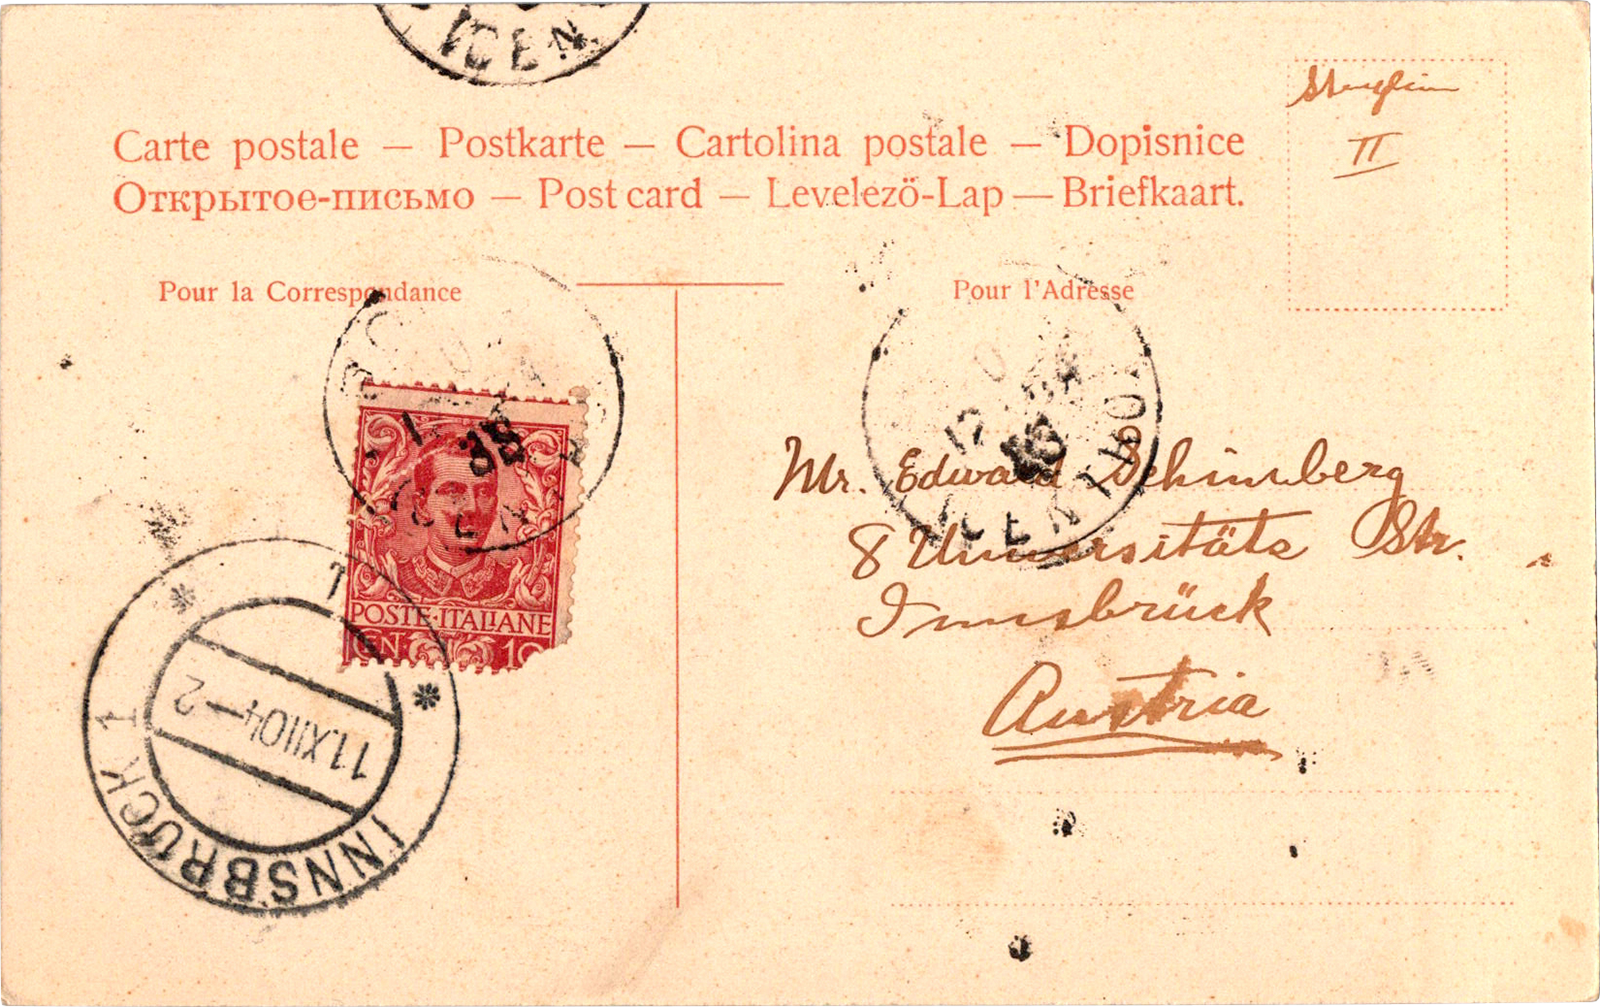 ICEN
Carte postale — Postkarte — Cartolina postale — Dopisnice
Открытое-письмо — Post card — Levelező-Lap — Briefkaart.
II
Pour la Correspondance
Pour l'Adresse
ICEN
POSTE·ITALIANE
CEN 10
INNSBRUCK 1
11.XII04—2
12
VICEN
Mr. Edward Schinsberg
8 Universitäts Str.
Innsbrück
Austria